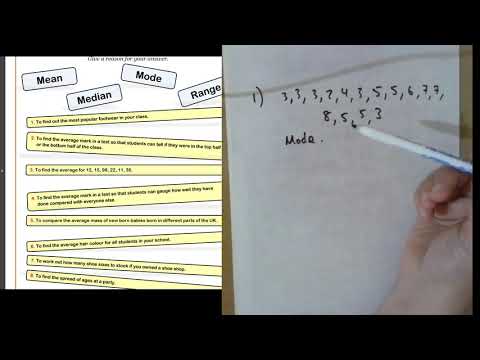 Give a reason for your answer.
Mean
Mode
Median
Range
1. To find out the most popular footwear in your class.
2. To find the average mark in a test so that students can tell if they were in the top half
or the bottom half of the class.
3. To find the average for 12, 15, 98, 22, 11, 36.
4. To find the average mark in a test so that students can gauge how well they have
done compared with everyone else.
5. To compare the average mass of new born babies born in different parts of the UK.
6. To find the average hair colour for all students in your school.
7. To work out how many shoe sizes to stock if you owned a shoe shop.
8. To find the spread of ages at a party.
1) 3, 3, 3, 2, 4, 3, 5, 5, 6, 7, 7,
8, 5, 5, 3
Mode.